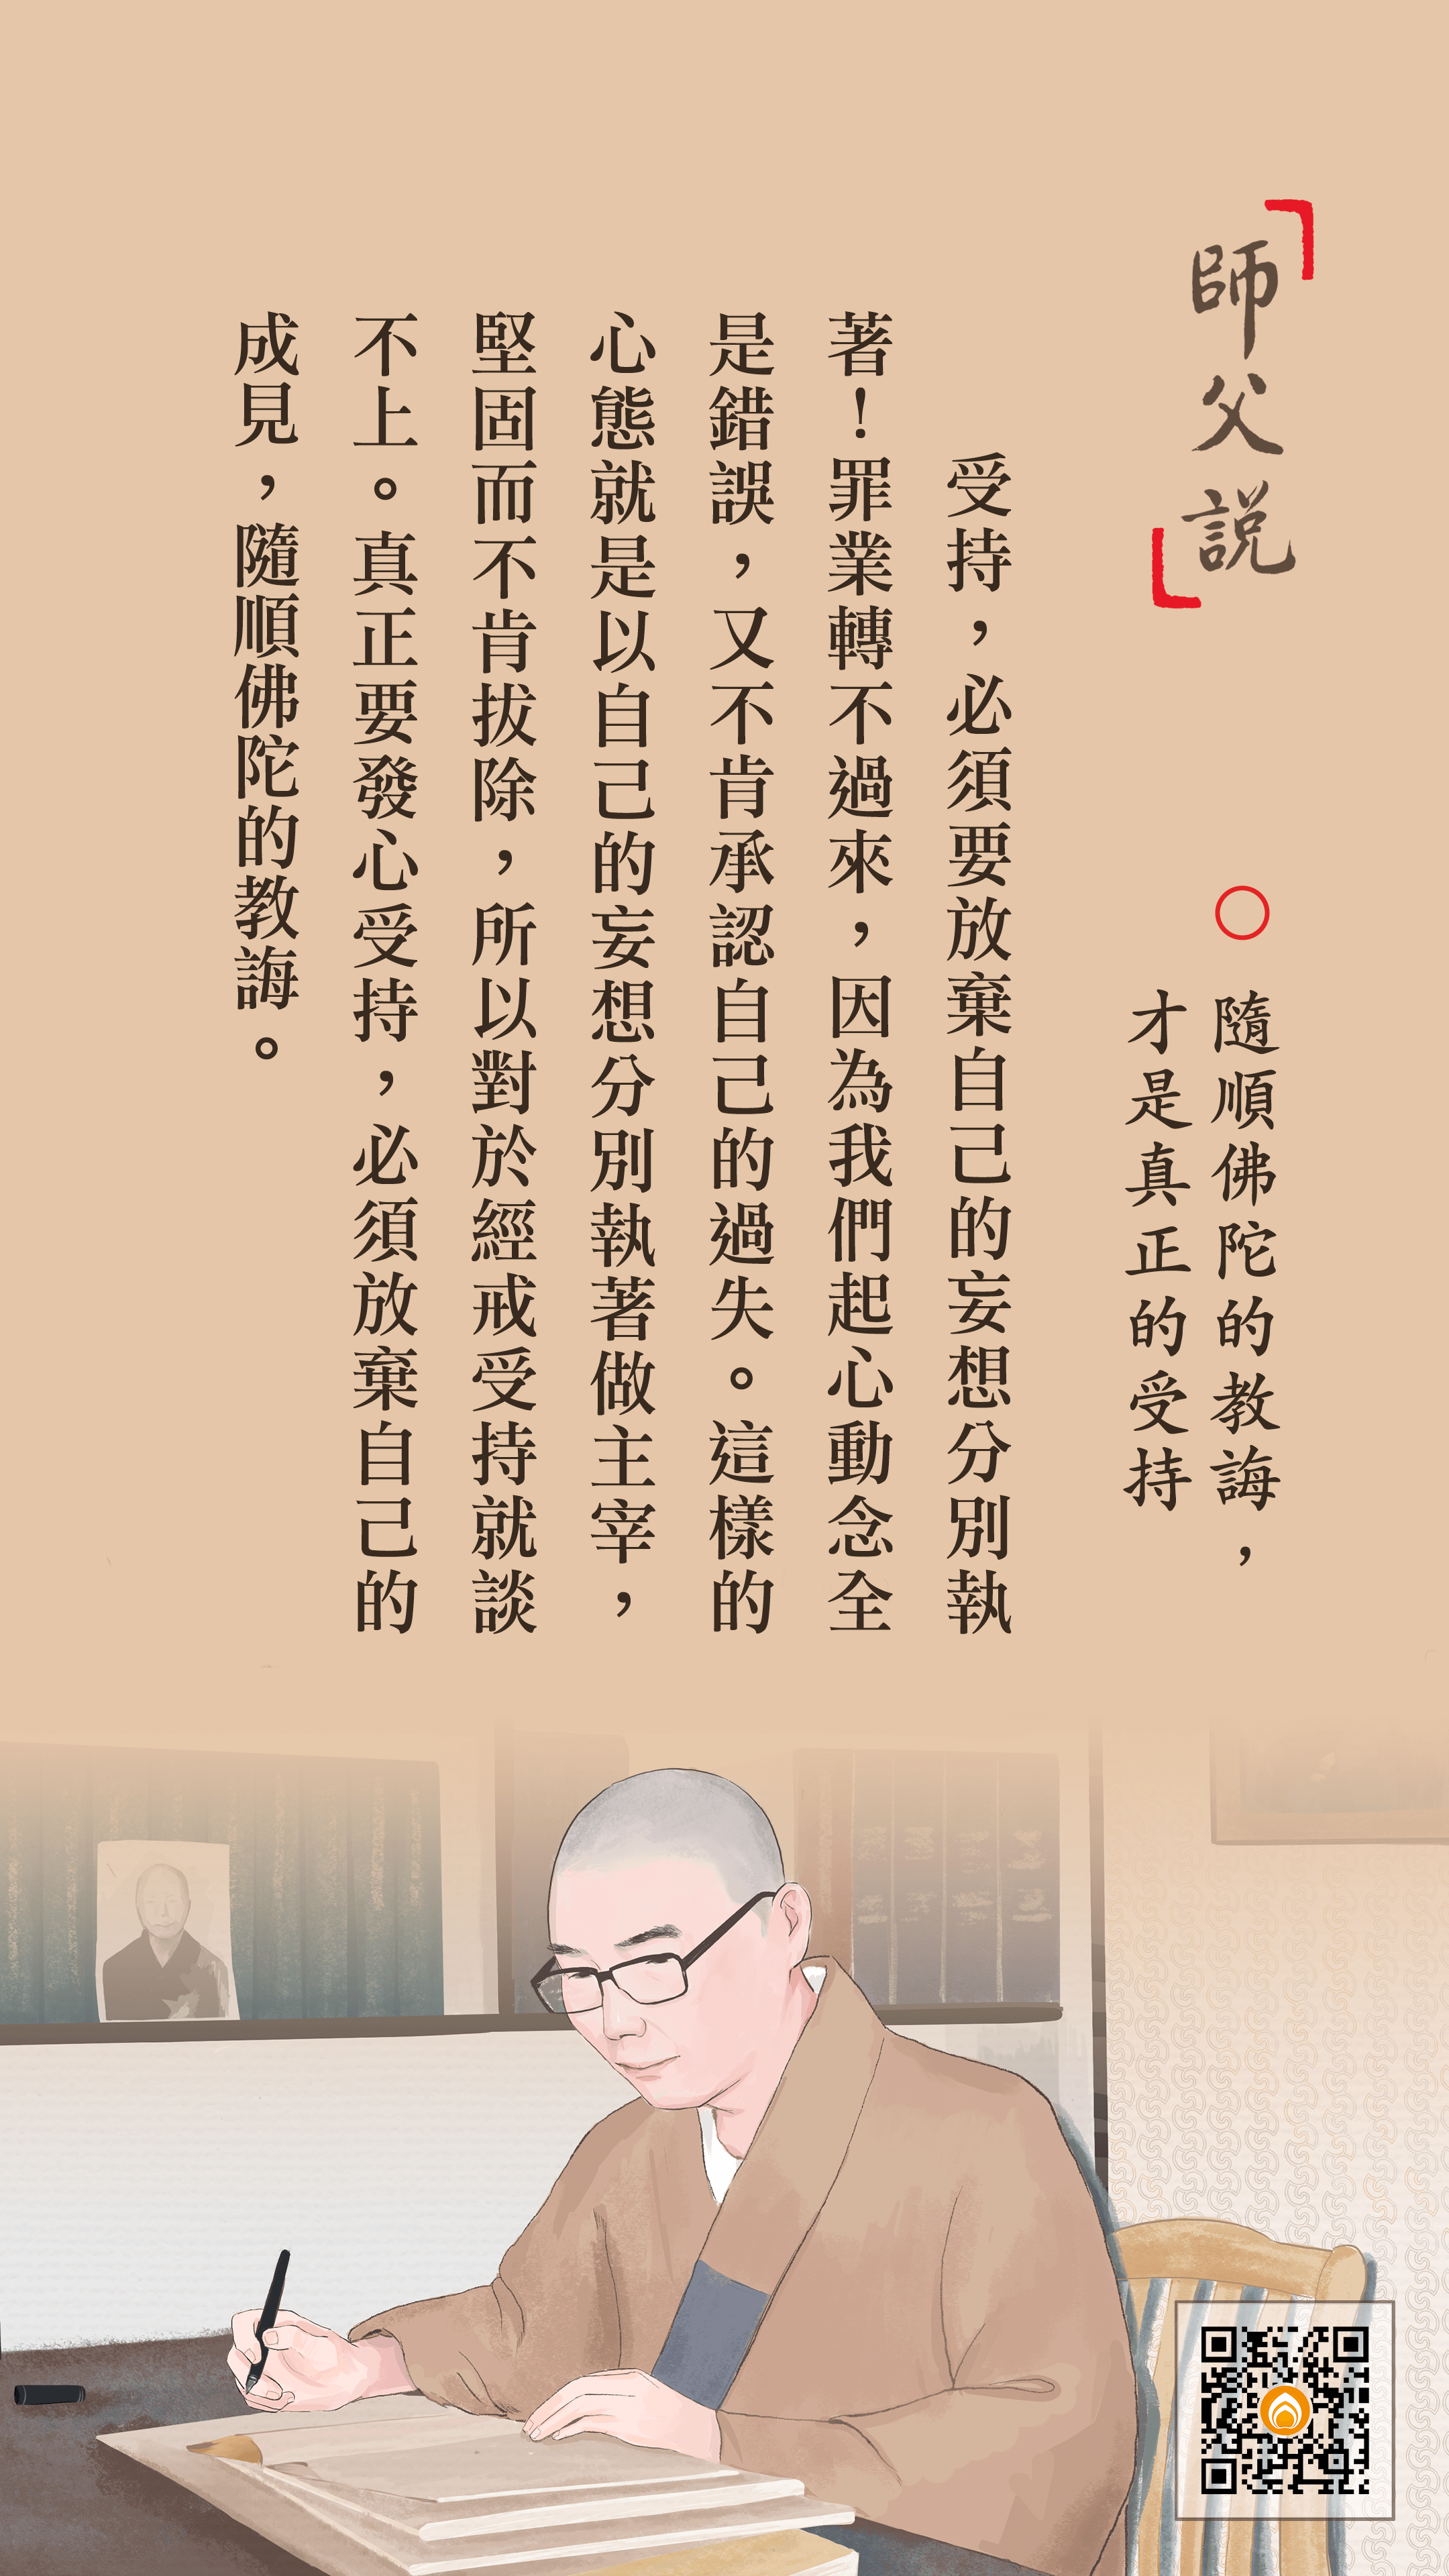 師父説
隨順佛陀的教誨，
才是真正的受持
受持，必須要放棄自己的妄想分別執
著！罪業轉不過來，因為我們起心動念全
是錯誤，又不肯承認自己的過失。這樣的
心態就是以自己的妄想分別執著做主宰，
堅固而不肯拔除，所以對於經戒受持就談
不上。真正要發心受持，必須放棄自己的
成見，隨順佛陀的教誨。